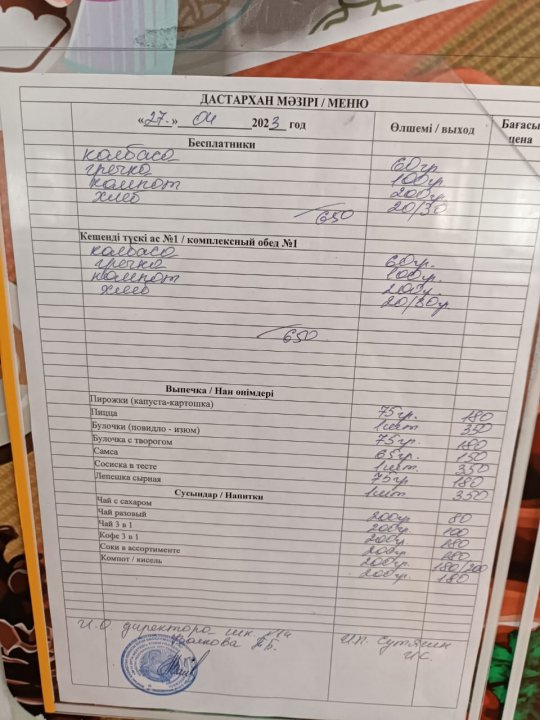 ДАСТАРХАН МӘЗІРІ / МЕНЮ
«27.» 04 2023 год Өлшемі / выход Бағасы цена
Бесплатники
колбаса 60гр
гречка 100гр
компот 200гр
хлеб 20/30
650
Кешенді түскі ас №1 / комплексный обед №1
колбаса 60гр.
гречка 100г.
компот 200г.
хлеб 20/30г.
650
Выпечка / Нан өнімдері
Пирожки (капуста-картошка) 75гр. 180
Пицца 1шт 350
Булочки (повидло - изюм) 75гр. 180
Булочка с творогом 65гр. 150
Самса 1шт 350
Сосиска в тесте 75гр 180
Лепешка сырная 1шт 350
Сусындар / Напитки
Чай с сахаром 200гр 80
Чай разовый 200гр. 100
Чай 3 в 1 200гр 180
Кофе 3 в 1 200гр. 180
Соки в ассортименте 200гр. 180/200
Компот / кисель 200гр. 180
И.О директора шк.
И.П. Сутягин
И.С.